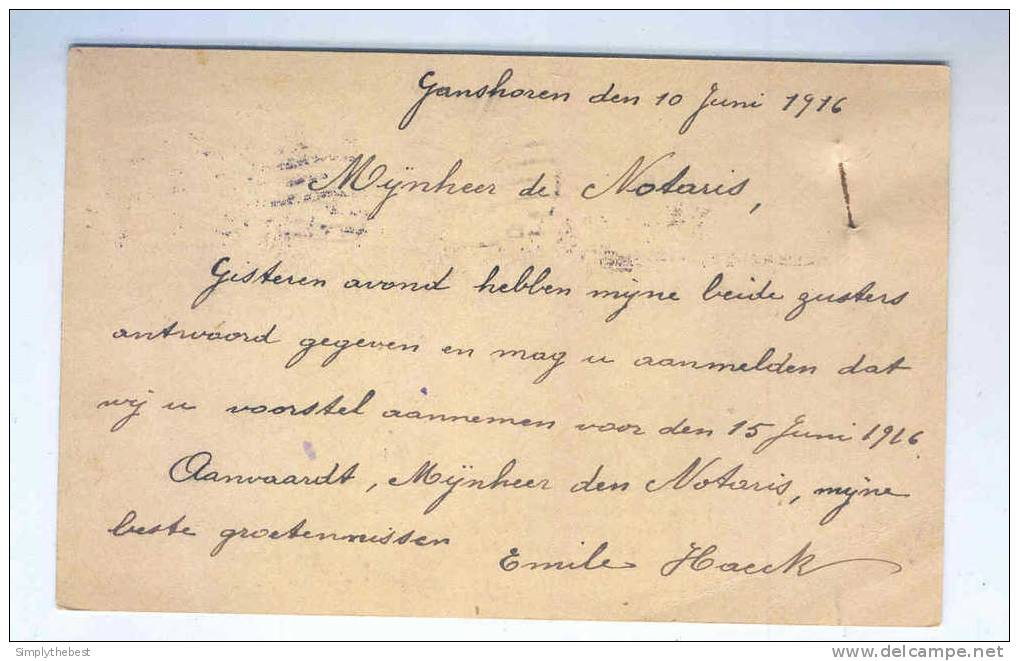 Ganshoren den 10 Juni 1916
Mijnheer de Notaris,
Gisteren avond hebben mijne beide zusters
antwoord gegeven en mag u aanmelden dat
wij u voorstel aannemen voor den 15 Juni 1916.
Aanvaardt, Mijnheer den Notaris, mijne
beste groetennissen
Emile Haeck
Simplythebest
www.delcampe.net